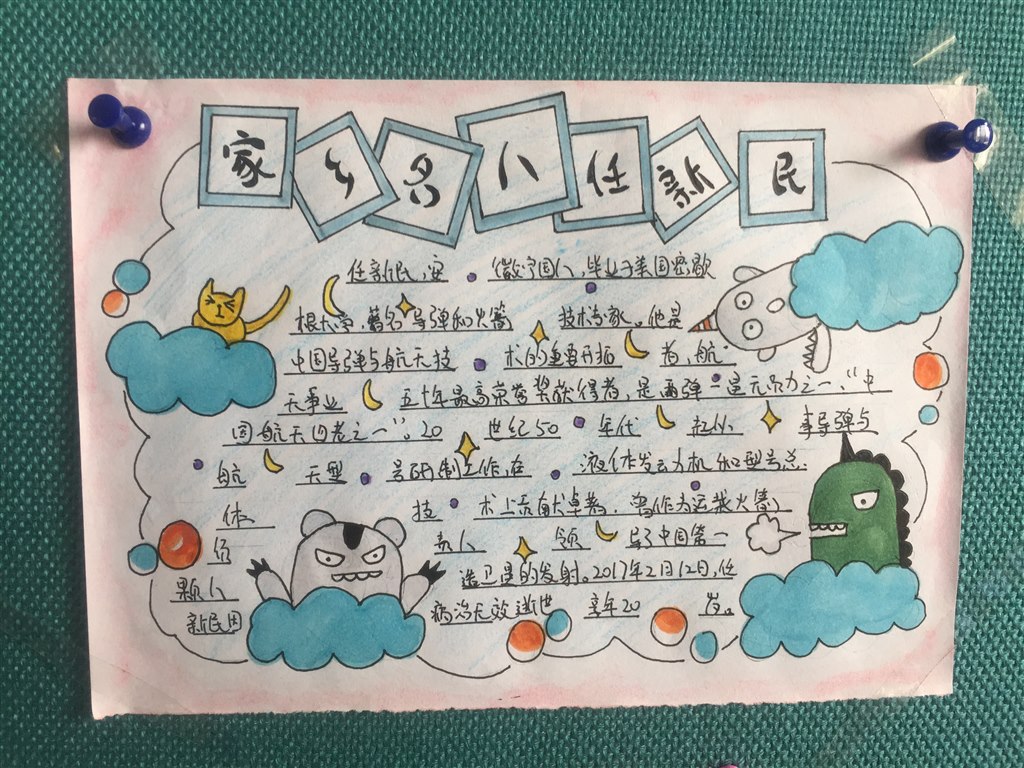 家乡名人任新民
任新民,安徽宁国人,毕业于美国密歇
根大学,著名导弹和火箭技术专家。他是
中国导弹与航天技术的重要开拓者,航
天事业五十年最高荣誉奖获得者,是两弹一星元勋之一,“中
国航天四老之一”。20世纪50年代 事导弹与
航天型号研制工作,在液体发动机和型号总
体技术上贡献卓著,曾作为运载火箭
负责人领导了中国第一
颗人造卫星的发射。2017年2月12日,任
新民因病治无效逝世 享年20岁。